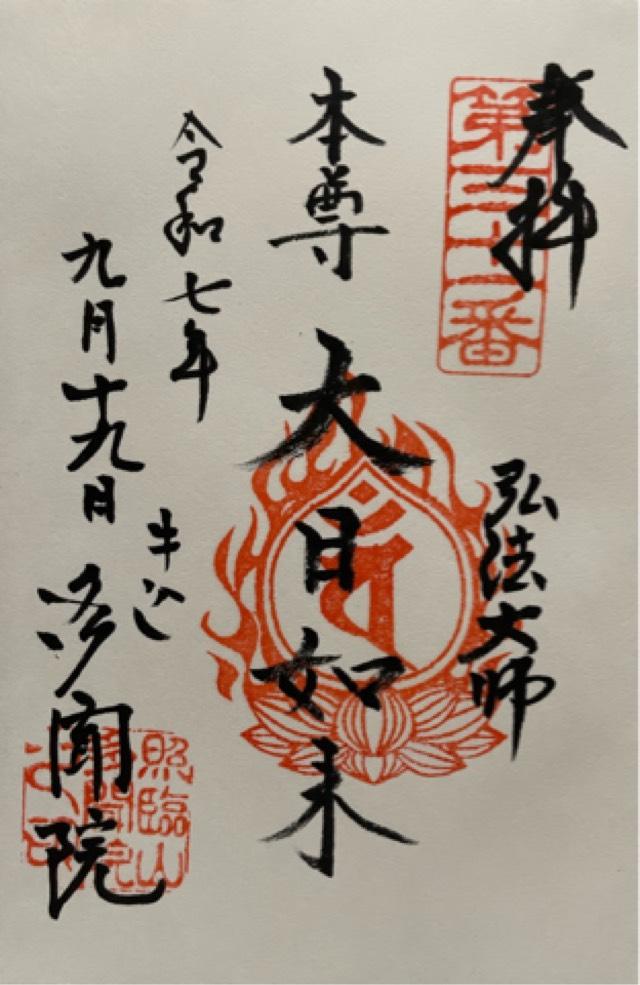 奉拝
第三十一番
弘法大師
本尊 大日如来
令和七年
九月十九日
牛込
多聞院
照臨山